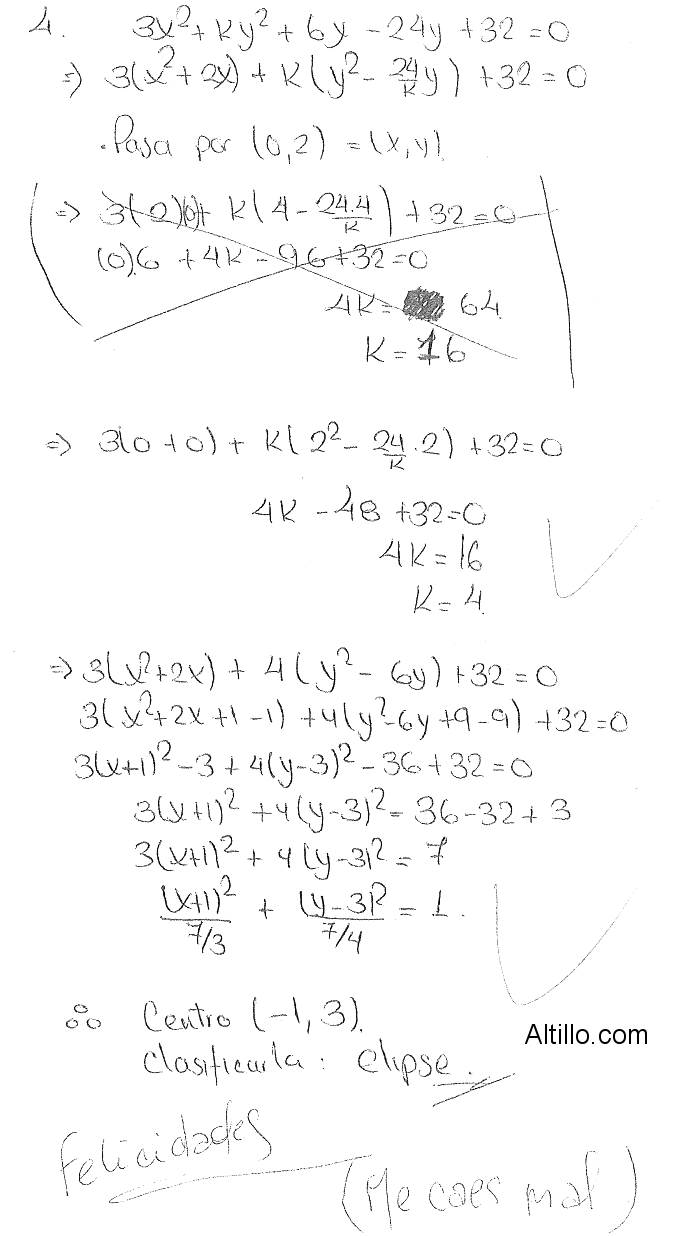 4. 3x² + ky² + 6y - 24y + 32 = 0
=> 3(x² + 2x) + k(y² - 24/k y) + 32 = 0
. Pasa por (0,2) = (x,y).
=> 3(0)(0) + k(4 - 24.4/k) + 32 = 0
(0)6 + 4k - 96 + 32 = 0
4k = 64
k = 16
=> 3(0 + 0) + k(2² - 24/k . 2) + 32 = 0
4k - 48 + 32 = 0
4k = 16
k = 4
=> 3(x² + 2x) + 4(y² - 6y) + 32 = 0
3(x² + 2x + 1 - 1) + 4(y² - 6y + 9 - 9) + 32 = 0
3(x+1)² - 3 + 4(y-3)² - 36 + 32 = 0
3(x+1)² + 4(y-3)² = 36 - 32 + 3
3(x+1)² + 4(y-3)² = 7
(x+1)²/7/3 + (y-3)²/7/4 = 1.
∴ Centro (-1, 3).
Altillo.com
Clasificarla : elipse.
Felicidades
(Me caes mal)